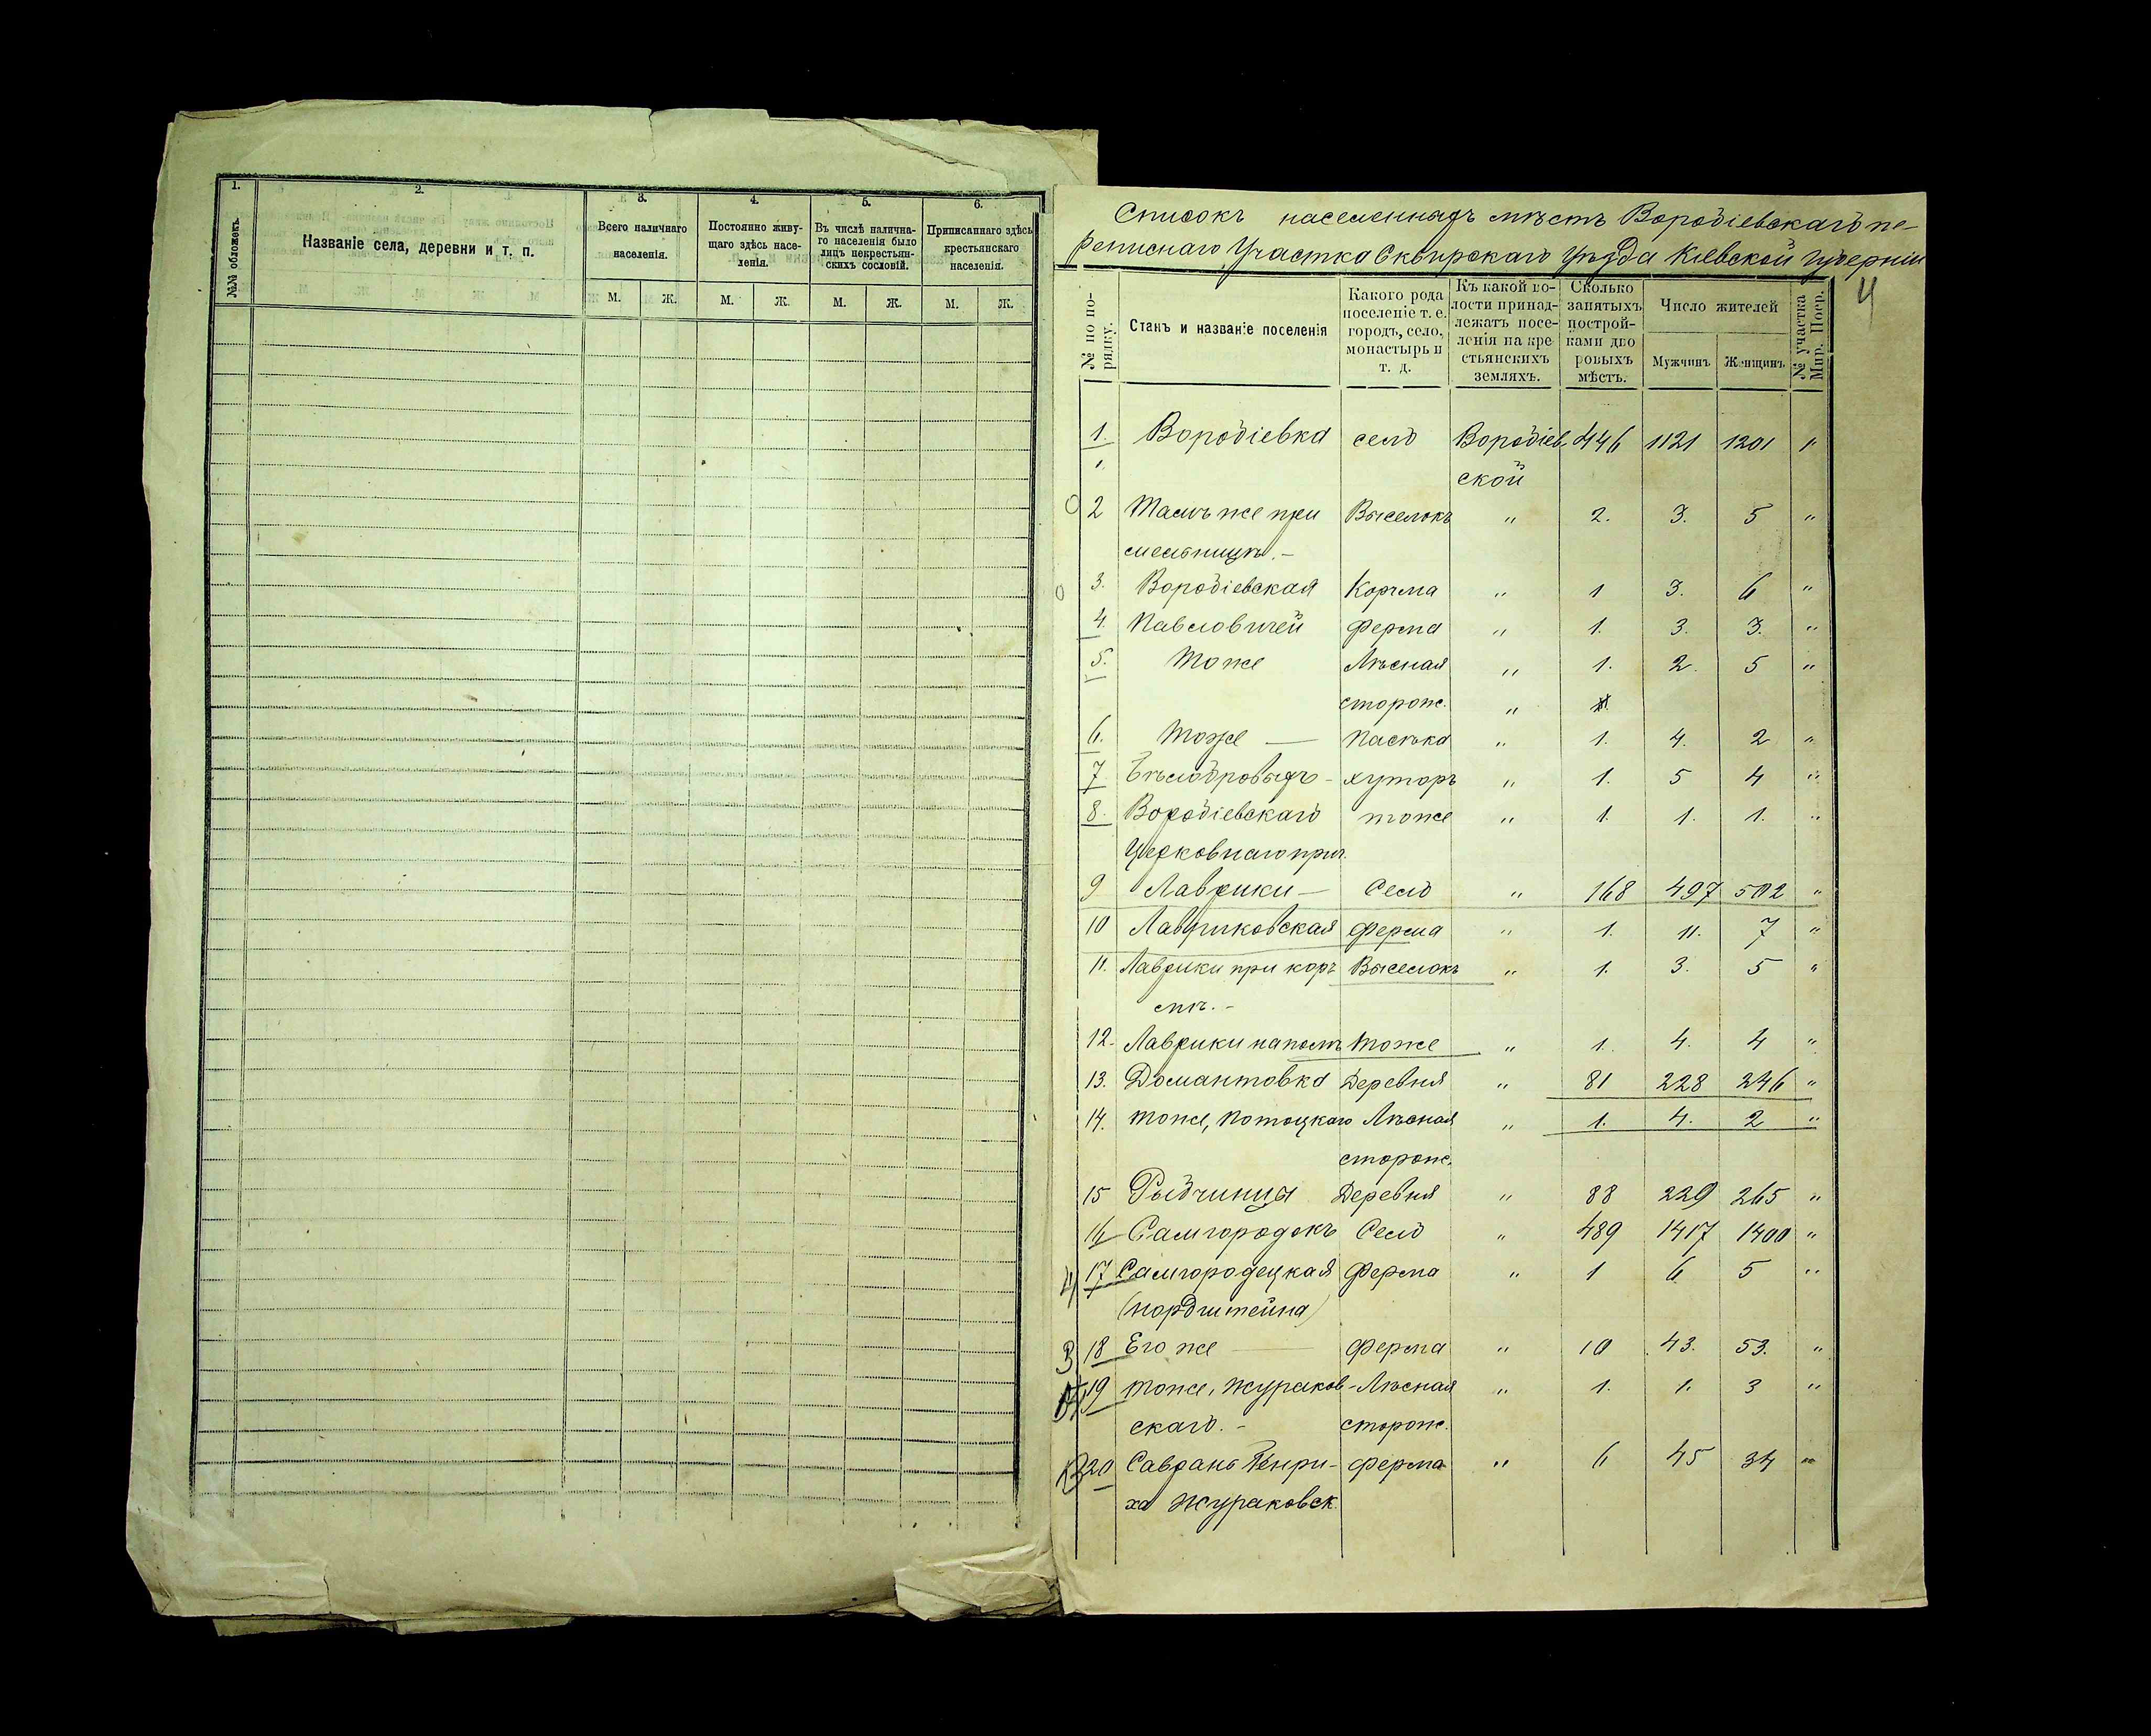 1.
2.
3.
4.
5.
6.
№№ обложекъ.
Названіе села, деревни и т. п.
Всего наличнаго
населенія.
Постоянно живу-
щаго здѣсь насе-
ленія.
Въ числѣ налична-
го населенія было
лицъ некрестьян-
скихъ сословій.
Приписаннаго здѣсь
крестьянскаго
населенія.
М. Ж. М. Ж. М. Ж. М. Ж.
Списокъ населенныхъ мѣстъ Вородіевскаго пе-
реписнаго Участка Сквирскаго Уѣзда Кіевской Губерніи
4
№ по по-
рядку.
Станъ и названіе поселенія
Какого рода
поселеніе т. е.
городъ, село,
монастырь и
т. д.
Къ какой во-
лости принад-
лежатъ посе-
ленія на кре
стьянскихъ
земляхъ.
Сколько
занятыхъ
построй-
ками дво
ровыхъ
мѣстъ.
Число жителей
Мужчинъ Женщинъ
№ участка
Мир. Поср.
1. Вородіевка село Вородіев 446 1121 1201 "
" ской
2 Тамъ же при Выселокъ " 2. 3. 5 "
мельницѣ. -
3. Вородіевская Корчма " 1 3. 6 "
4. Павловичей ферма " 1. 3. 3. "
5. Тоже Лѣсная " 1. 2. 5 "
сторож. "
6. Тоже — Пасѣка " 1. 4. 2 "
7 - хуторъ " 1. 5 4 "
8. Вородіевскаго тоже " 1. 1. 1. "
Церковнаго прич.
9 Лаврики — Село " 168 497 502 "
10 Лавриковская ферма " 1. 11. 7 "
11. Лаврики при корч Выселокъ " 1. 3. 5 "
мѣ. -
12. Лаврики на полѣ тоже " 1. 4. 4 "
13. Домантовка Деревня " 81 228 246 "
14. тоже, Потоцкаго Лѣсная " 1. 4. 2 "
сторож.
15 Рыбчинцы Деревня " 88 229 265 "
16 Самгородокъ Село " 489 1417 1400 "
4 17 Самгородецкая Ферма " 1 6 5 "
(нордштейна)
3 18 Его же — ферма " 10 43. 53. "
19 тоже, Жураков- Лѣсная " 1. 1. 3 "
скаго. - сторож.
20 Саврань Генри- ферма " 6 45 34 "
ха Жураковск.